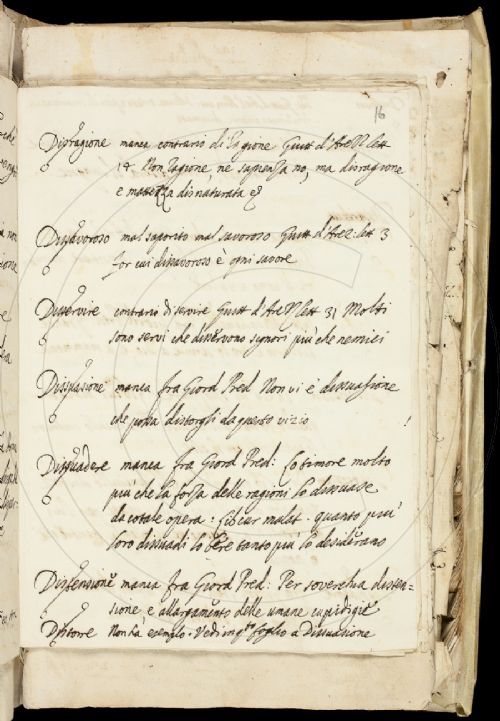 16
Disragione manca contrario di Ragione Guitt d'Arezz lett
14 Non ragione, ne sapienza no, ma disragione
e mattezza disnaturata e
Dissavoroso mal saporito mal savoroso Guitt d'Arez: lett 3
for cui dissavoroso è ogni savore
Disservire contrario di servire Guitt d'Arezz lett 31 Molti
sono servi che disservono signori più che nemici
Dissuasione manca fra Giord Pred Non vi è dissuasione
che possa distorgli da questo vizio
Dissuadere manca fra Giord Pred: Lo timore molto
più che la forza delle ragioni lo dissuase
da cotale opera: Lib cur malat. quanto più
loro dissuadi lo bere tanto più lo desiderano
Distensione manca fra Giord Pred: Per soverchia disten=
sione e allargamento delle umane cupidigie
non ha esempio. Vedi foglio a Dissuasione